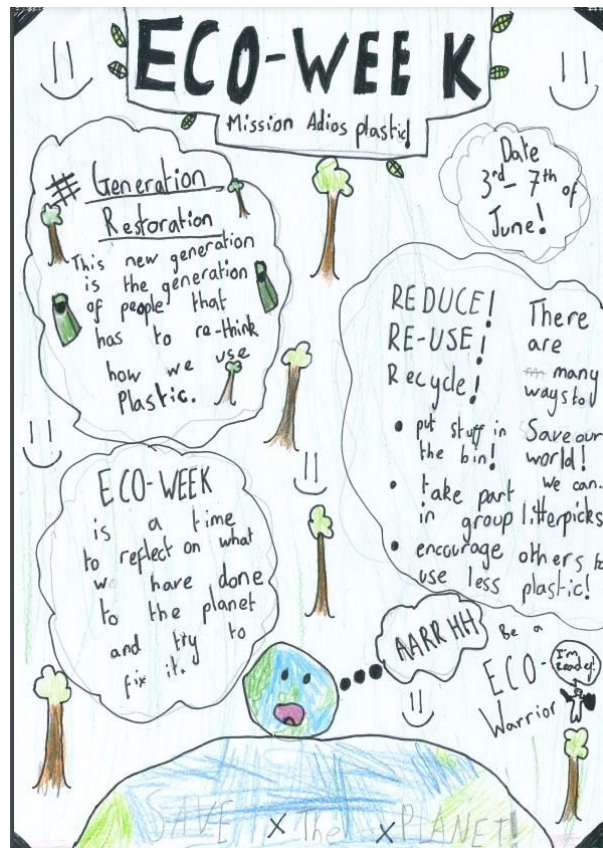 ECO-WEEK
Mission Adios plastic!
# Generation
Restoration
This new generation
is the generation
of people that
has to re-think
how we use
Plastic.
Date
3rd - 7th of
June!
REDUCE!
RE-USE!
Recycle!
There
are
many
ways to
Save our
world!
we can..
• put stuff in
the bin!
• take part
in group litterpicks
• encourage others to
use less plastic!
ECO-WEEK
is a time
to reflect on what
we have done
to the planet
and try to
fix it.
AARRHH
Be a
ECO-
Warrior
I'm
Ready!
SAVE x The x PLANET!